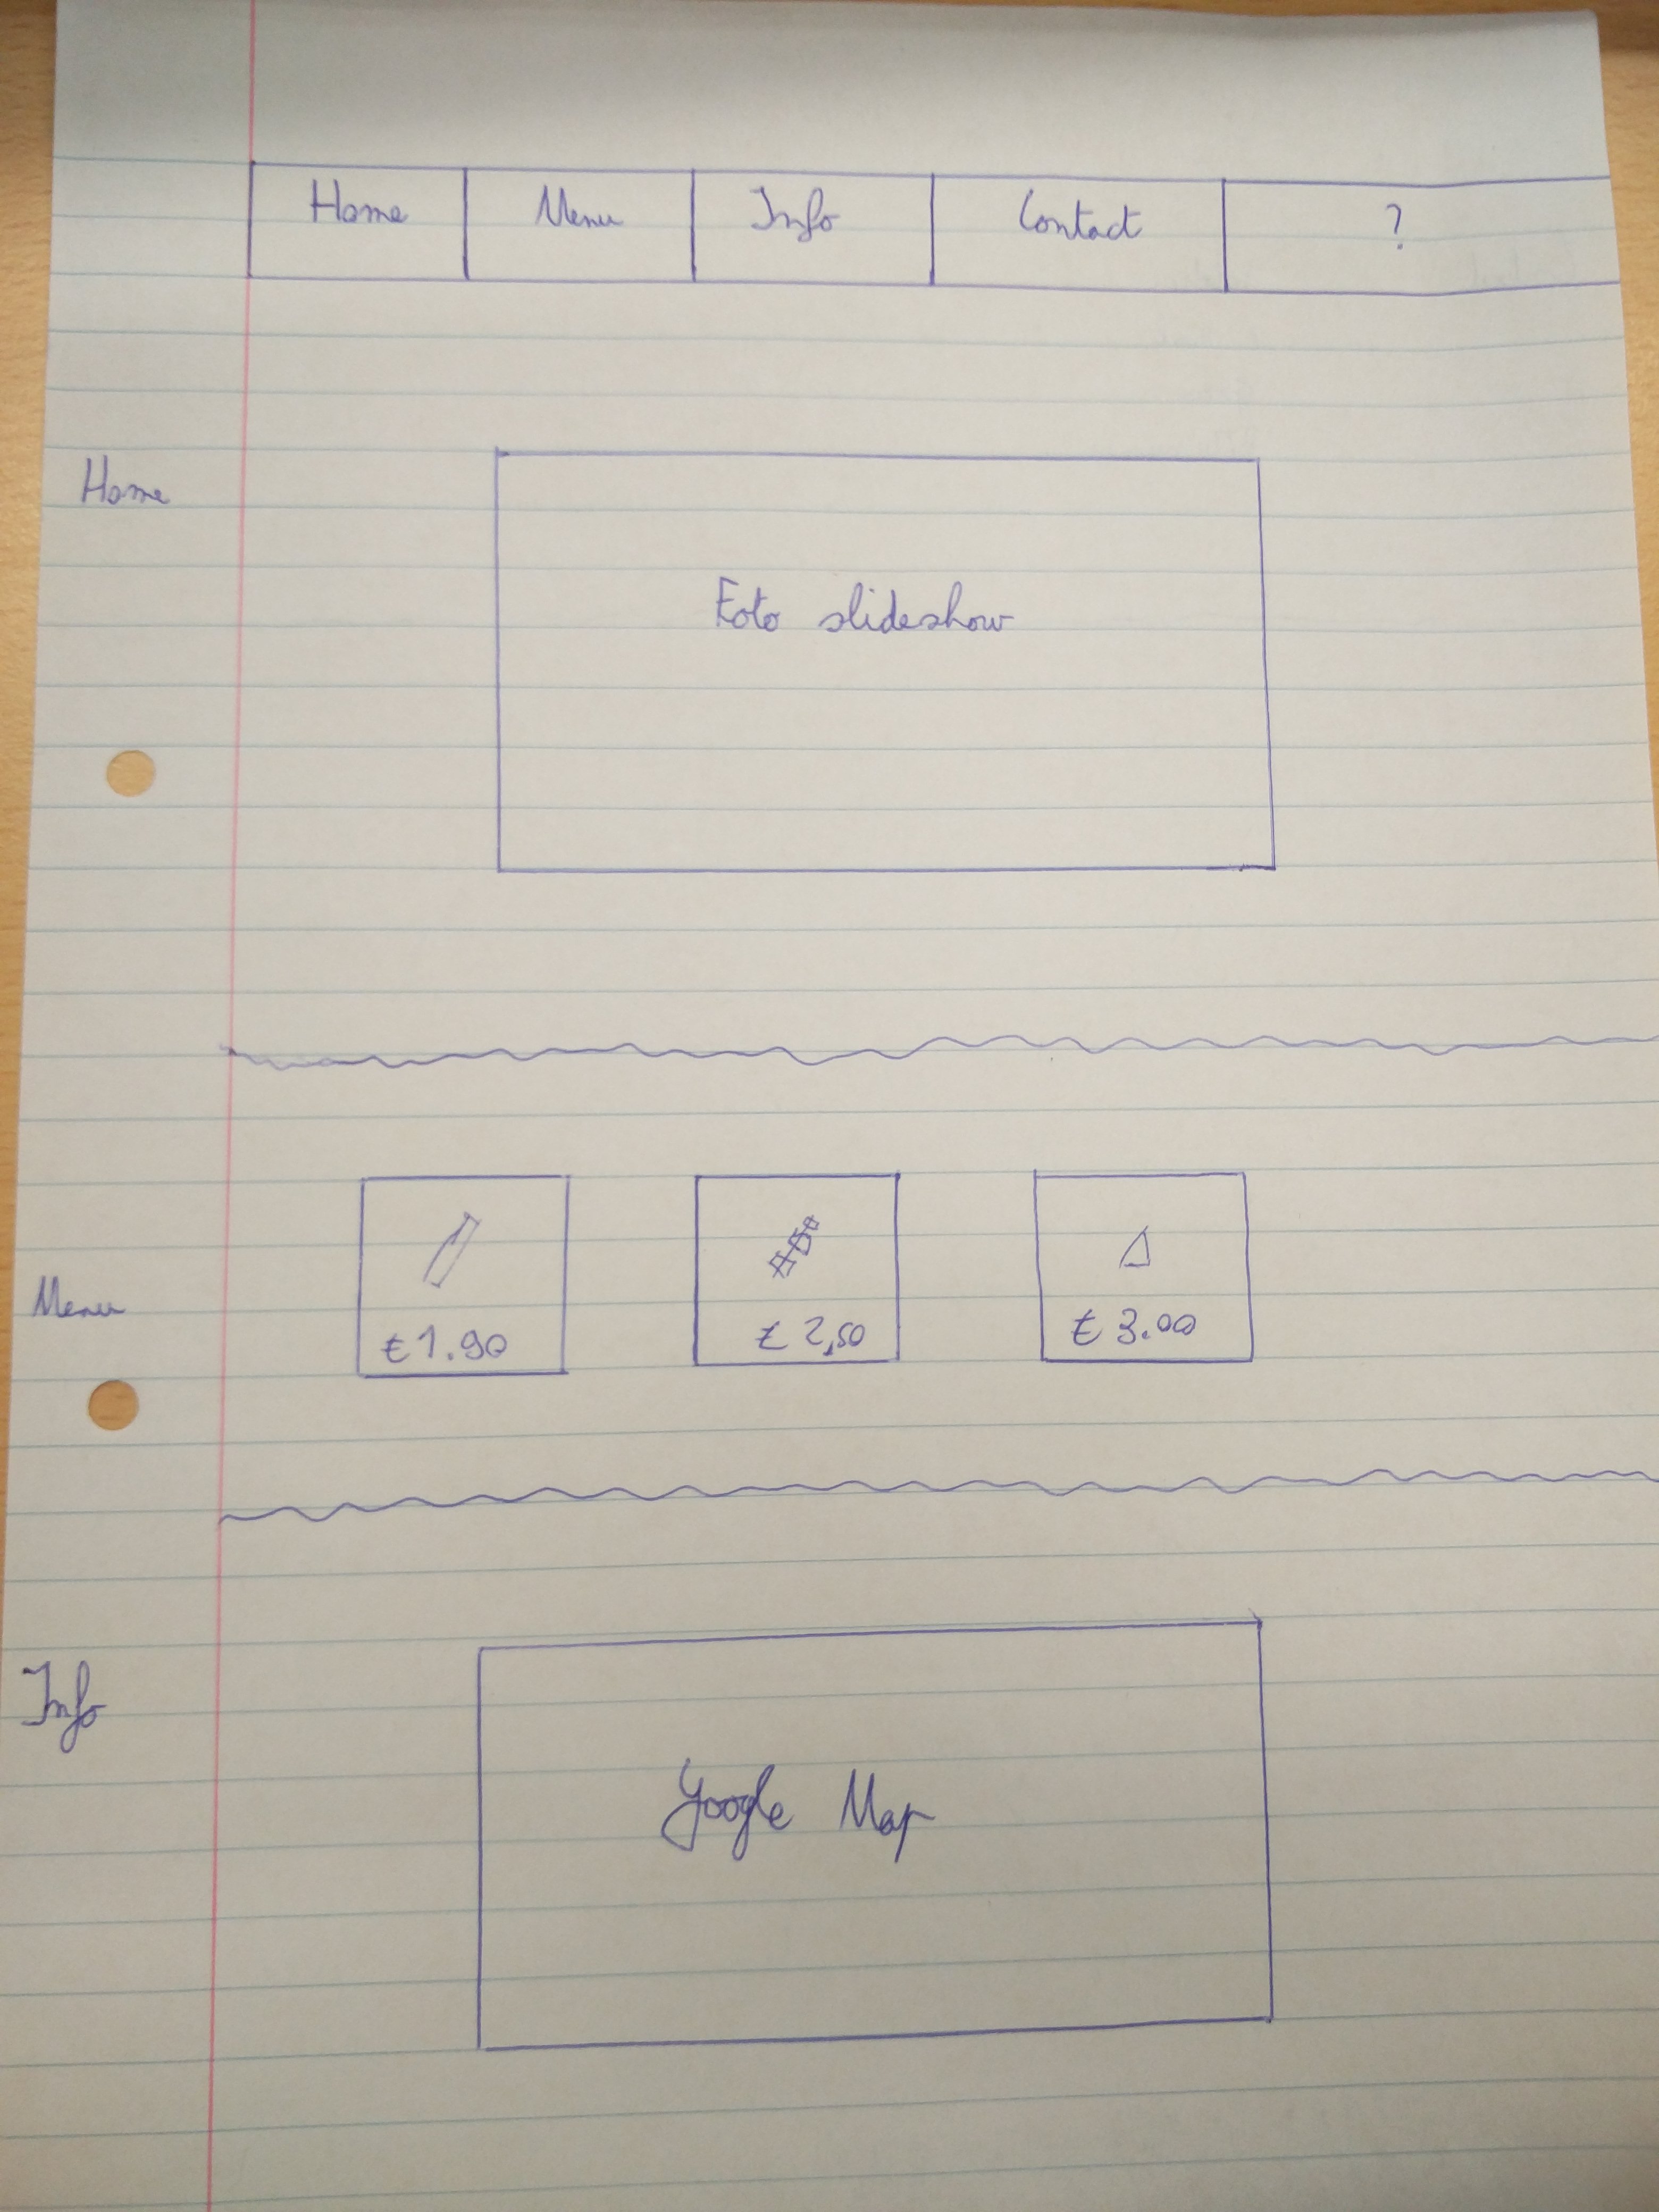 Home Menu Info Contact ?
Home
Foto slideshow
Menu
€ 1.90 € 2,50 € 3.00
Info
Google Map